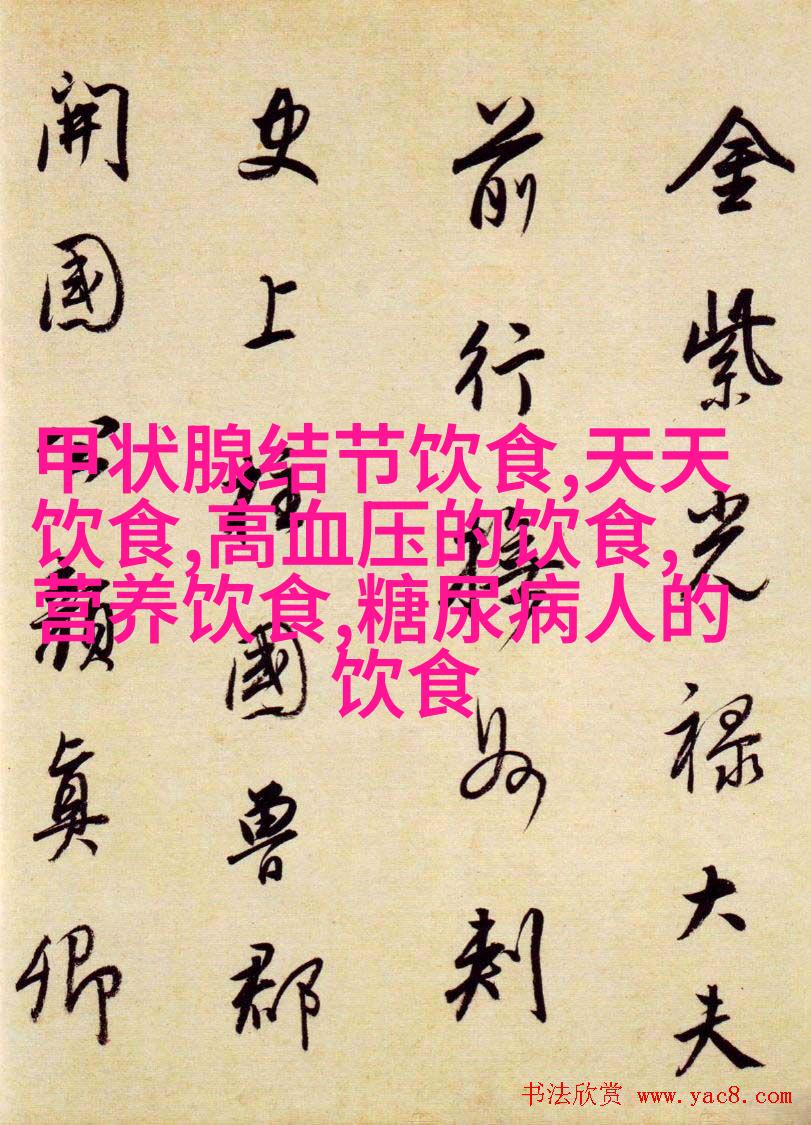 金紫光禄大夫
前行撫州刺
史上柱國魯郡
開國公顏真卿
甲状腺结节饮食,天天
饮食,高血压的饮食,
营养饮食,糖尿病人的
饮食
书法欣赏 www.yac8.com